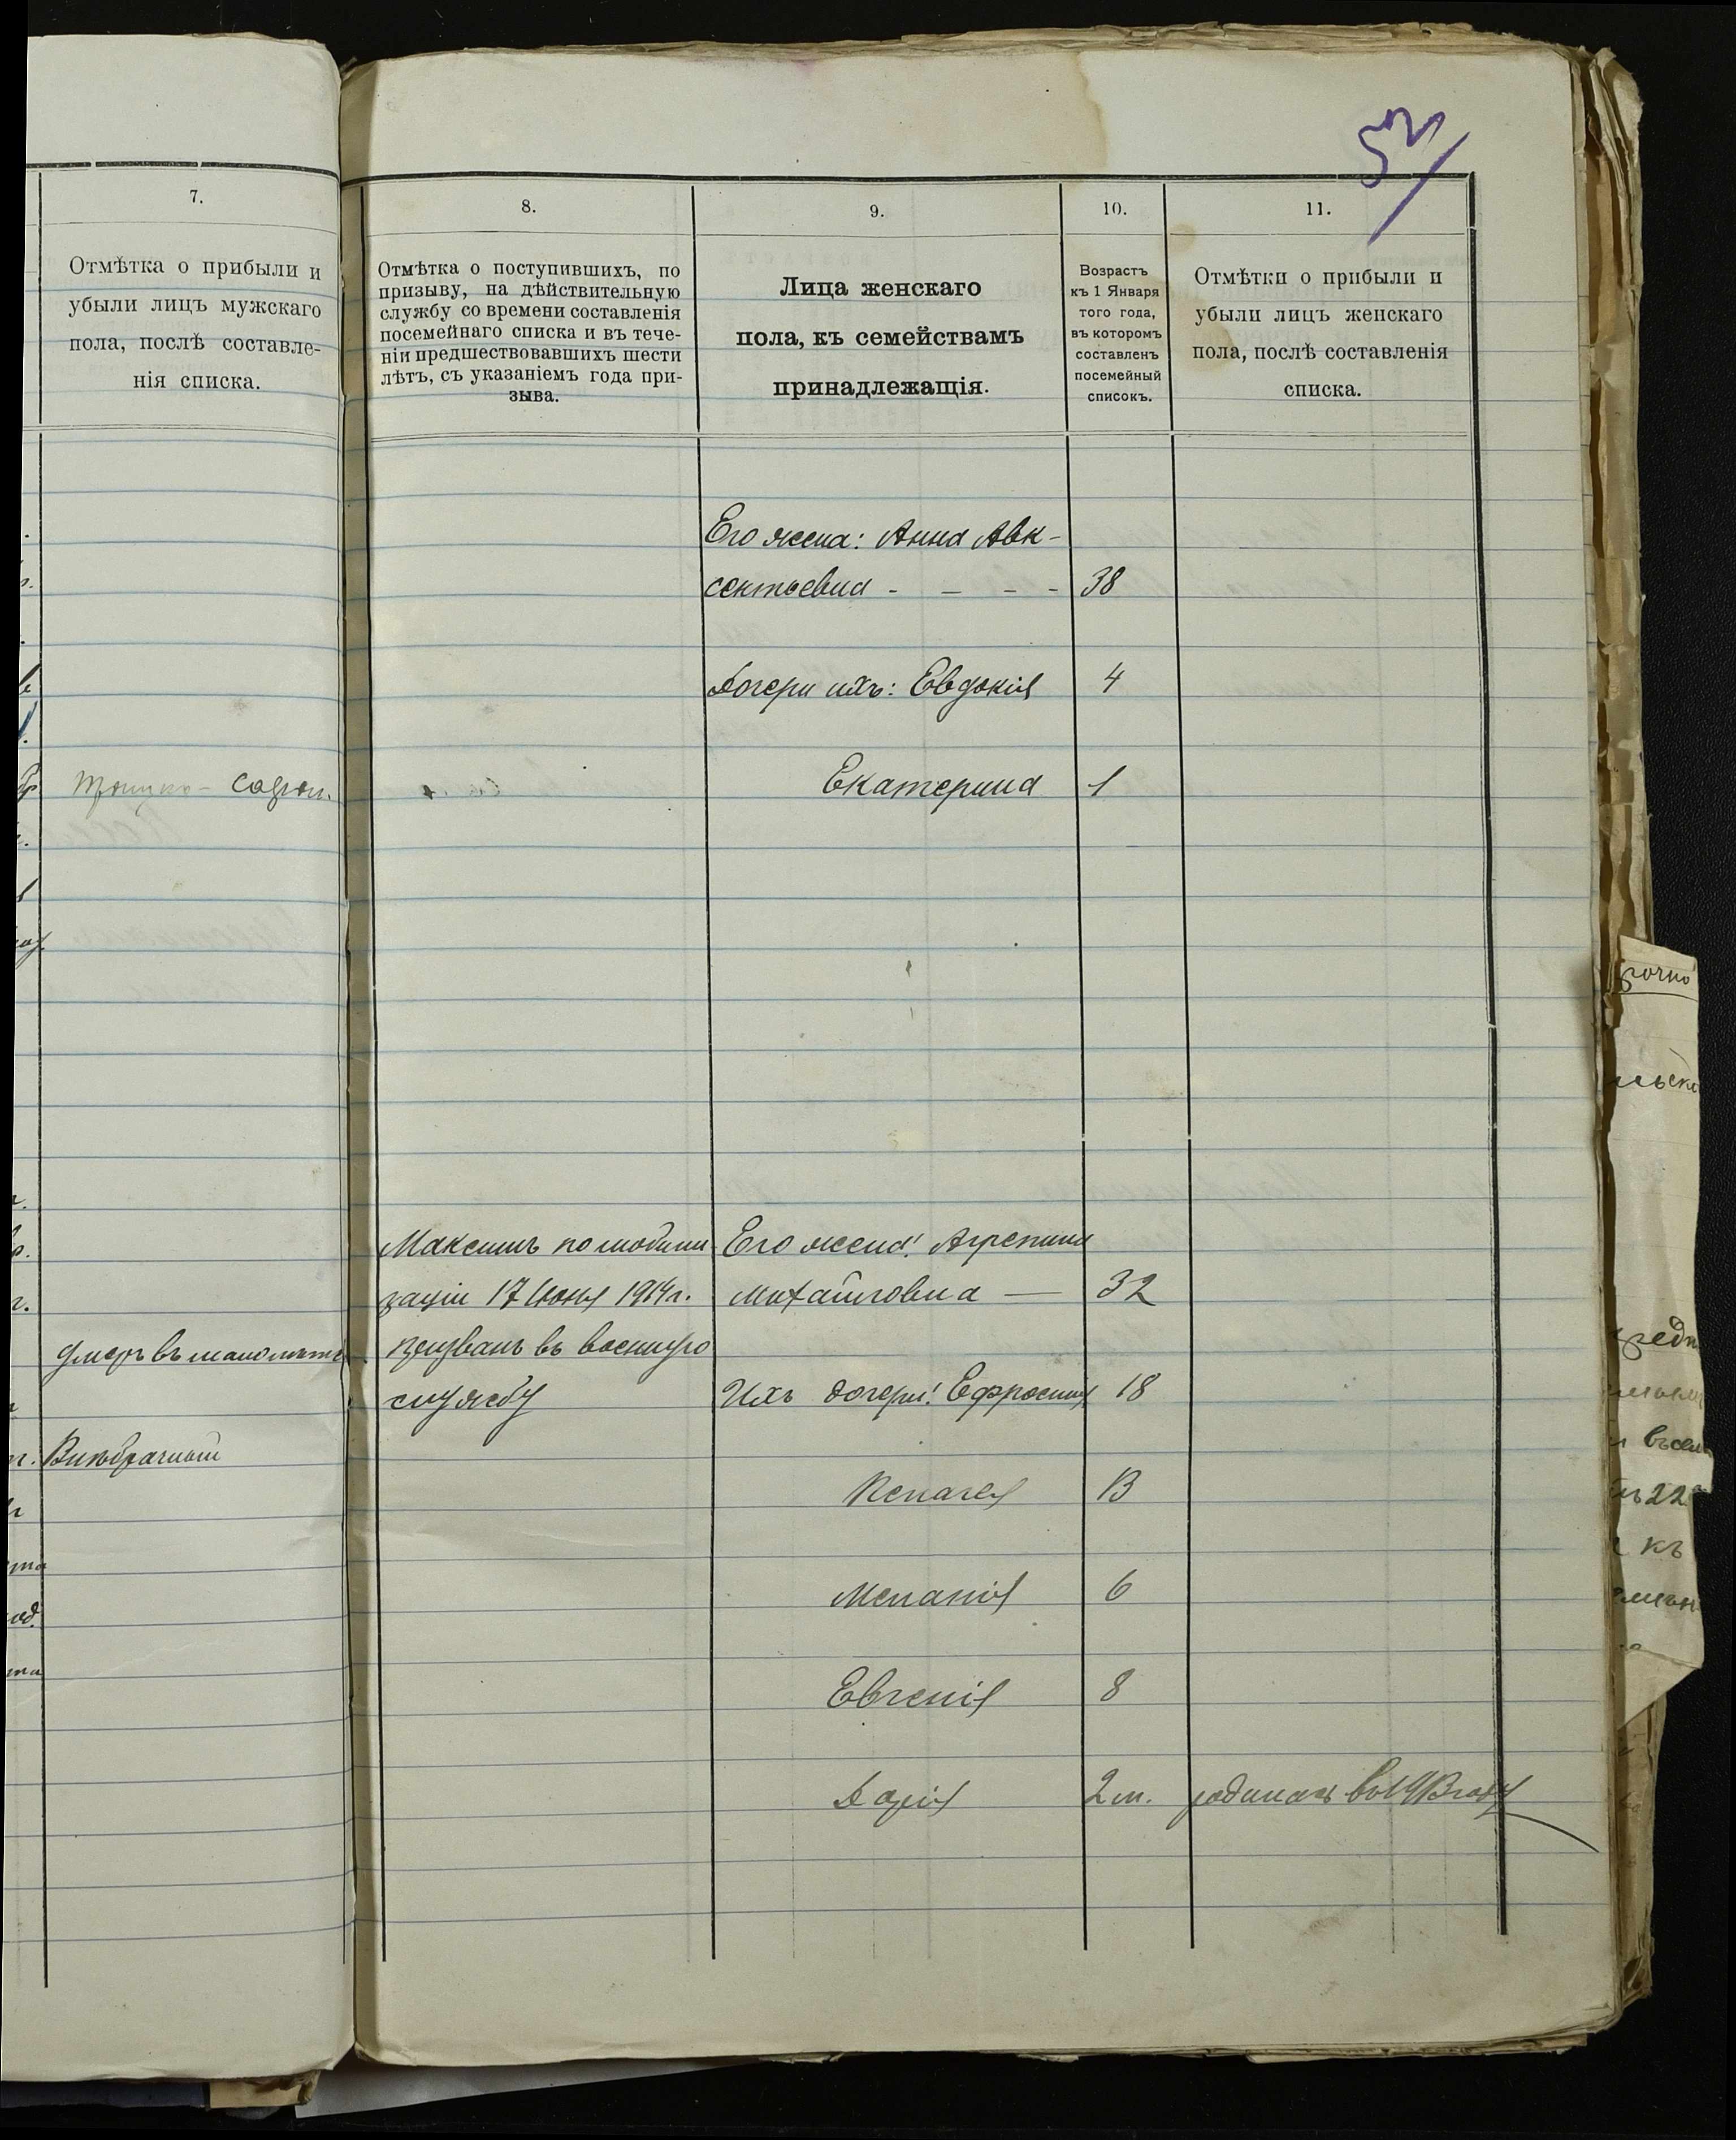 52
7.
Отмѣтка о прибыли и
убыли лицъ мужскаго
пола, послѣ составле-
нія списка.
8.
Отмѣтка о поступившихъ, по
призыву, на дѣйствительную
службу со времени составленія
посемейнаго списка и въ тече-
ніи предшествовавшихъ шести
лѣтъ, съ указаніемъ года при-
зыва.
9.
Лица женскаго
пола, къ семействамъ
принадлежащія.
10.
Возрастъ
къ 1 Января
того года,
въ которомъ
составленъ
посемейный
списокъ.
11.
Отмѣтки о прибыли и
убыли лицъ женскаго
пола, послѣ составленія
списка.
Его жена: Анна Авк-
сентьевна - - - - 38
Дочери ихъ: Евдокія 4
Екатерина 1
умеръ въ
Внѣбрачный
Максимъ по мобили
заціи 17 Іюня 1914 г.
призванъ въ военную
службу
Его жена: Агрепина
Михайловна — 32
Ихъ дочери: Ефросинія 18
13
Меланія 6
Евгенія 8
Дарія 2 м. родилась въ 1913 году
срочно
въ 22
къ